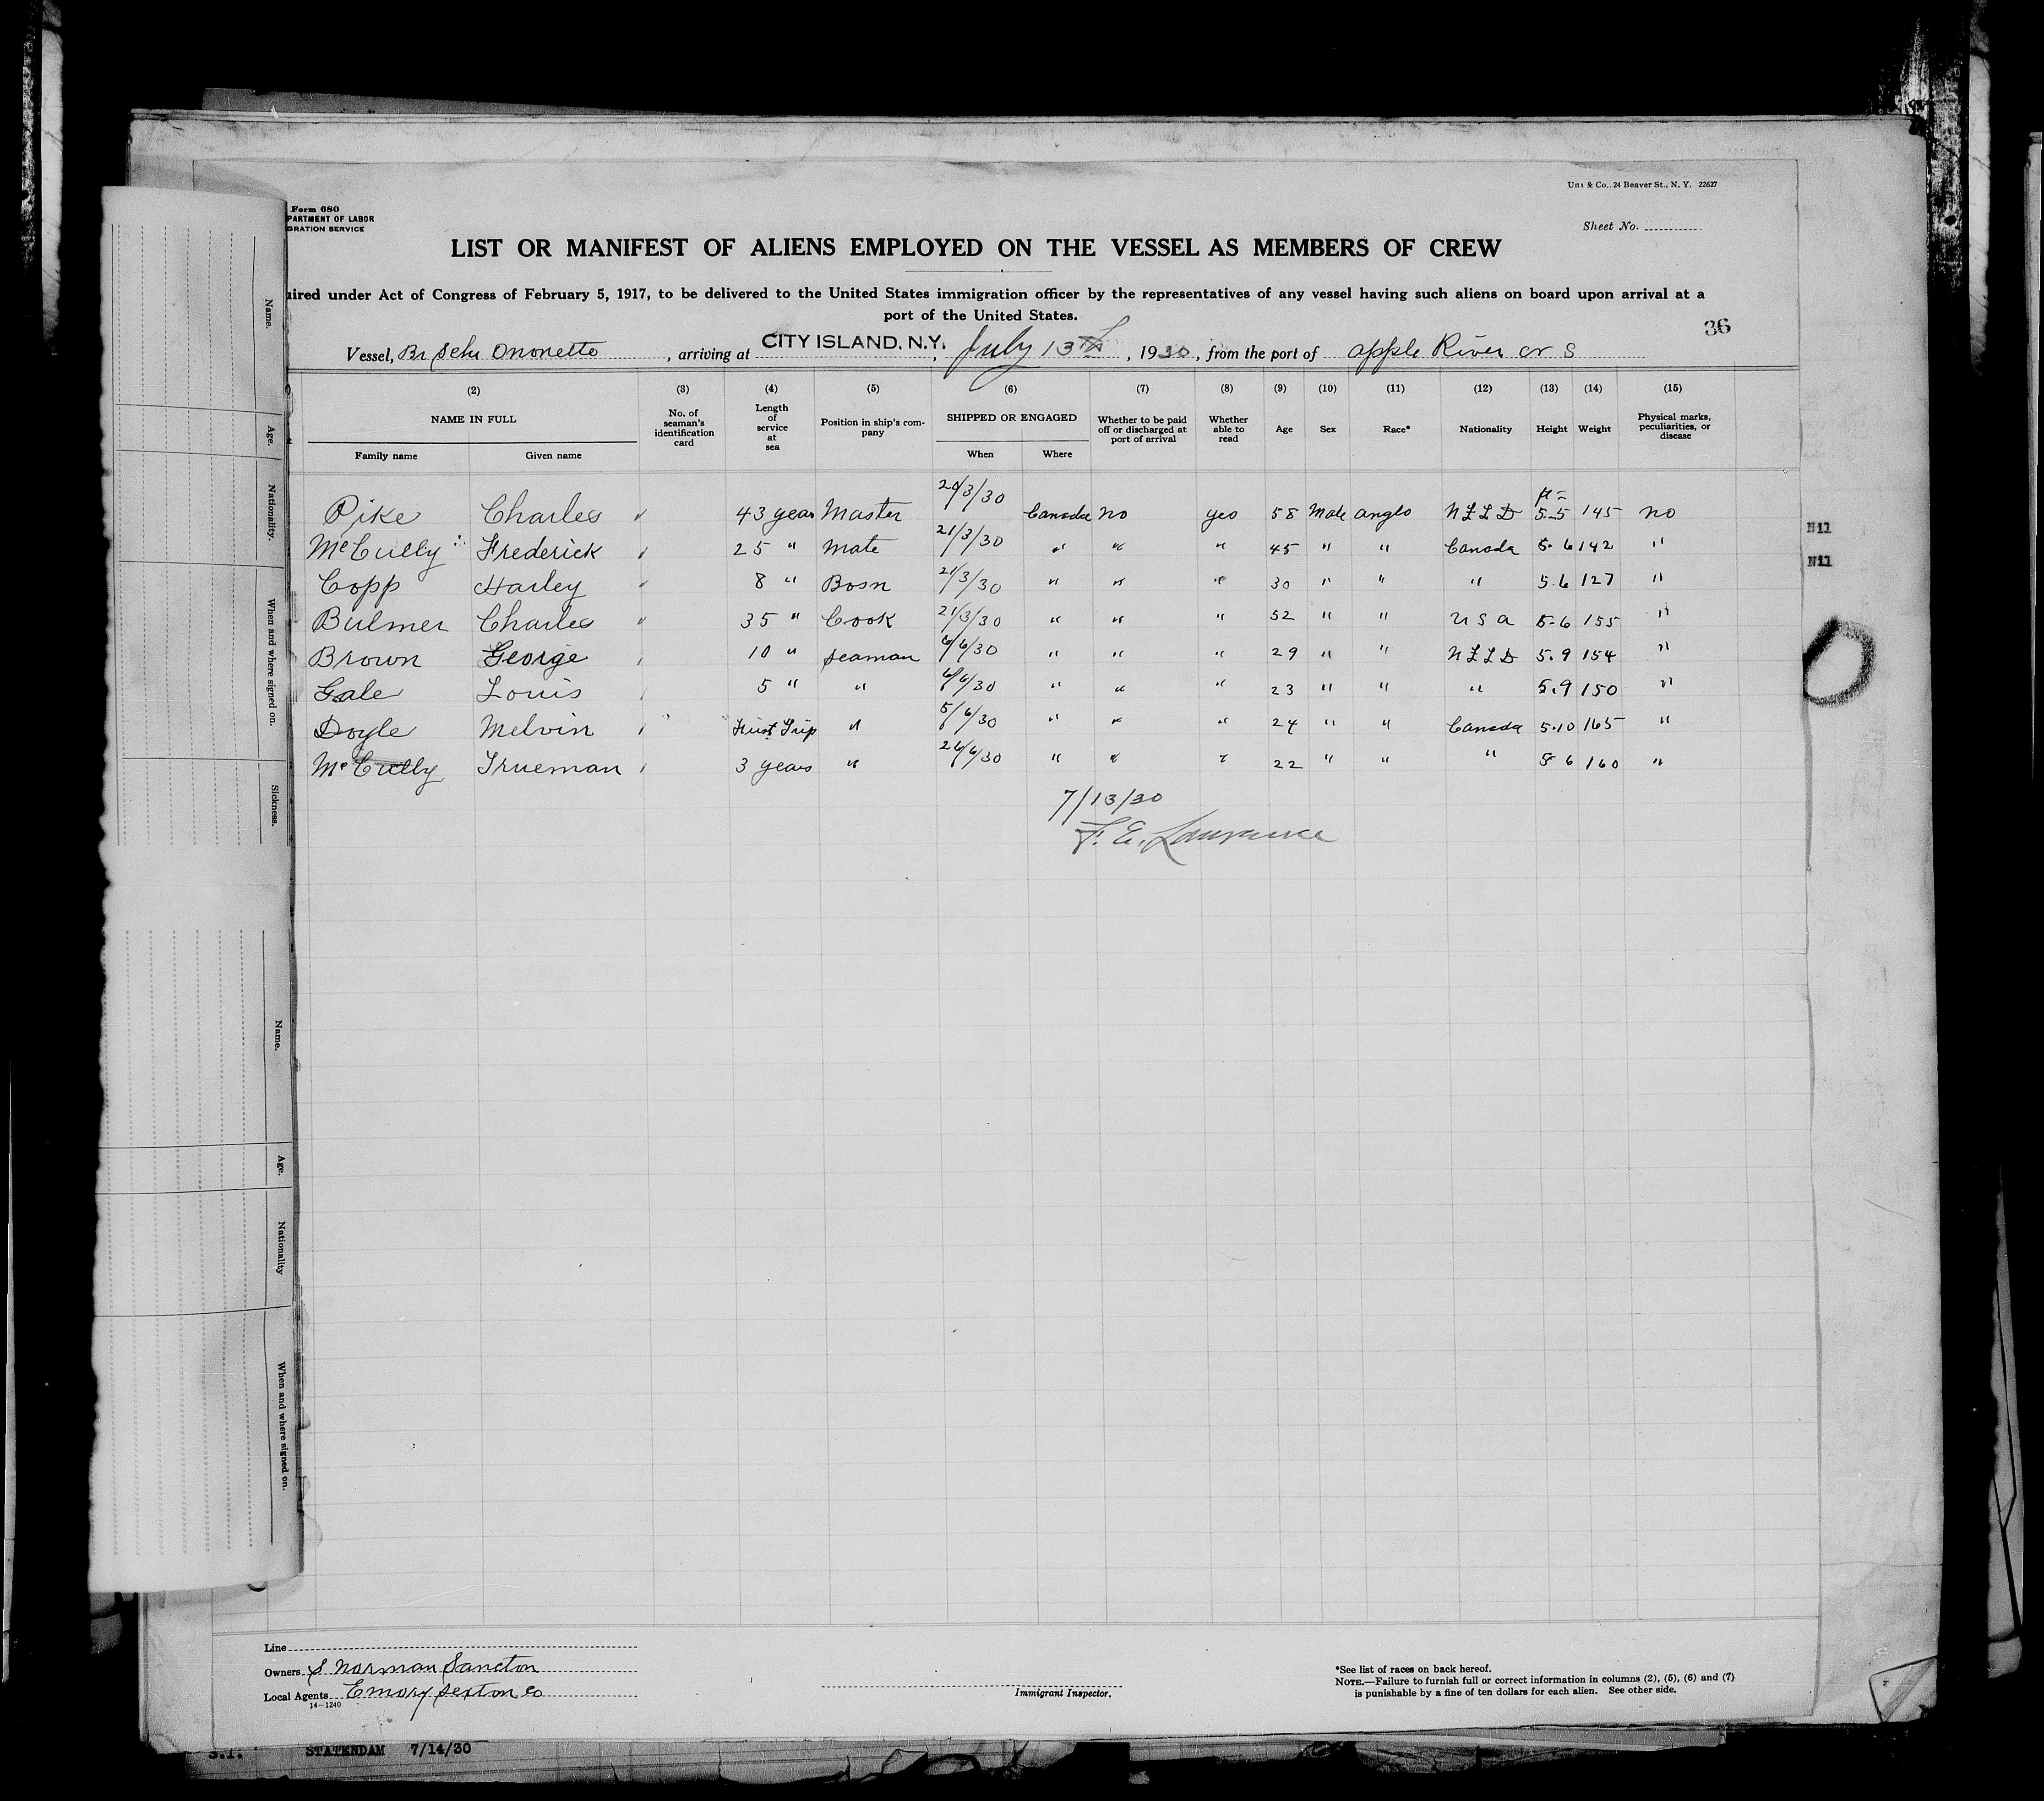 Unz & Co., 24 Beaver St., N. Y. 22627
Form 680
PARTMENT OF LABOR
GRATION SERVICE
Sheet No.
LIST OR MANIFEST OF ALIENS EMPLOYED ON THE VESSEL AS MEMBERS OF CREW
uired under Act of Congress of February 5, 1917, to be delivered to the United States immigration officer by the representatives of any vessel having such aliens on board upon arrival at a
port of the United States.
36
Vessel, Br Schr Ononette, arriving at CITY ISLAND, N.Y., July 13th, 1930, from the port of apple River N S
(2) (3) (4) (5) (6) (7) (8) (9) (10) (11) (12) (13) (14) (15)
NAME IN FULL No. of seaman's identification card Length of service at sea Position in ship's company SHIPPED OR ENGAGED Whether to be paid off or discharged at port of arrival Whether able to read Age Sex Race* Nationality Height Weight Physical marks, peculiarities, or disease
Family name Given name When Where
Pike Charles 43 years Master 20/3/30 Canada no yes 58 Male anglo N F L D ft 5-5 145 no
McCully Frederick 25 " Mate 21/3/30 " " " 45 " " Canada 5.6 142 "
Nil
Copp Harley 8 " Bosn 21/3/30 " " " 30 " " " 5.6 127 "
Nil
Bulmer Charles 35 " Cook 21/3/30 " " " 52 " " U S a 5-6 155 "
Brown George 10 " seaman 6/6/30 " " " 29 " " N F L D 5.9 154 "
Gale Louis 5 " " 6/6/30 " " " 23 " " " 5.9 150 "
Doyle Melvin First Trip " 5/6/30 " " " 24 " " Canada 5.10 165 "
McCully Trueman 3 years " 26/6/30 " " " 22 " " " 5 6 160 "
7/13/30
F. E. Lawrence
Name.
Age.
Nationality.
When and where signed on.
Sickness.
Name.
Age.
Nationality
When and where signed on.
Line
Owners S Norman Sancton
Local Agents Emory Sexton Co
14-1240
Immigrant Inspector.
*See list of races on back hereof.
NOTE.—Failure to furnish full or correct information in columns (2), (5), (6) and (7)
is punishable by a fine of ten dollars for each alien. See other side.
S.I. STATENDAM 7/14/30